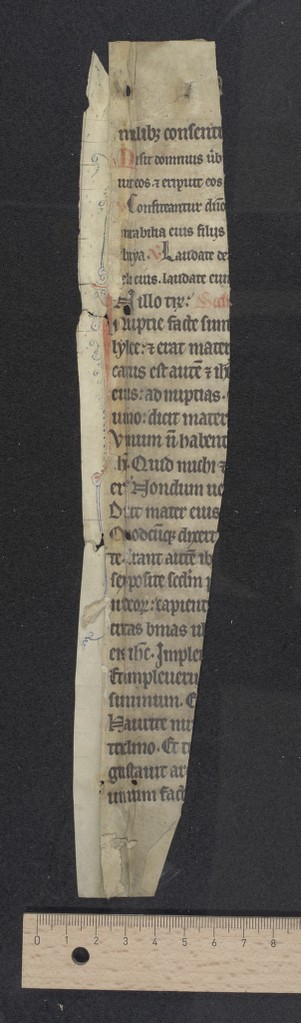 milibꝫ consenti
Misit dominus ūb
uit eos ⁊ eripuit eos
Confiteantur dño
mirabilia eius filijs
luya. Laudate de
eli eius. laudate eum
N illo tꝑr:
nuptie facte sunt
lylee: ⁊ erat mater
catus est autē ⁊ ihc
eius: ad nuptias.
uino: dicit mater
Vinum ñ habent
ih. Quid michi ⁊
er Nondum ue
Dicit mater eius
Quodcūqꝫ dixerit
te. Erant autē ib
sex posite scdm
iudeoꝝ: capient
tretas binas ul
eis ihc. Implete
Et impleueru
summum. E
Haurite nu
triclino. Et t
gustauit ar
uinum fact